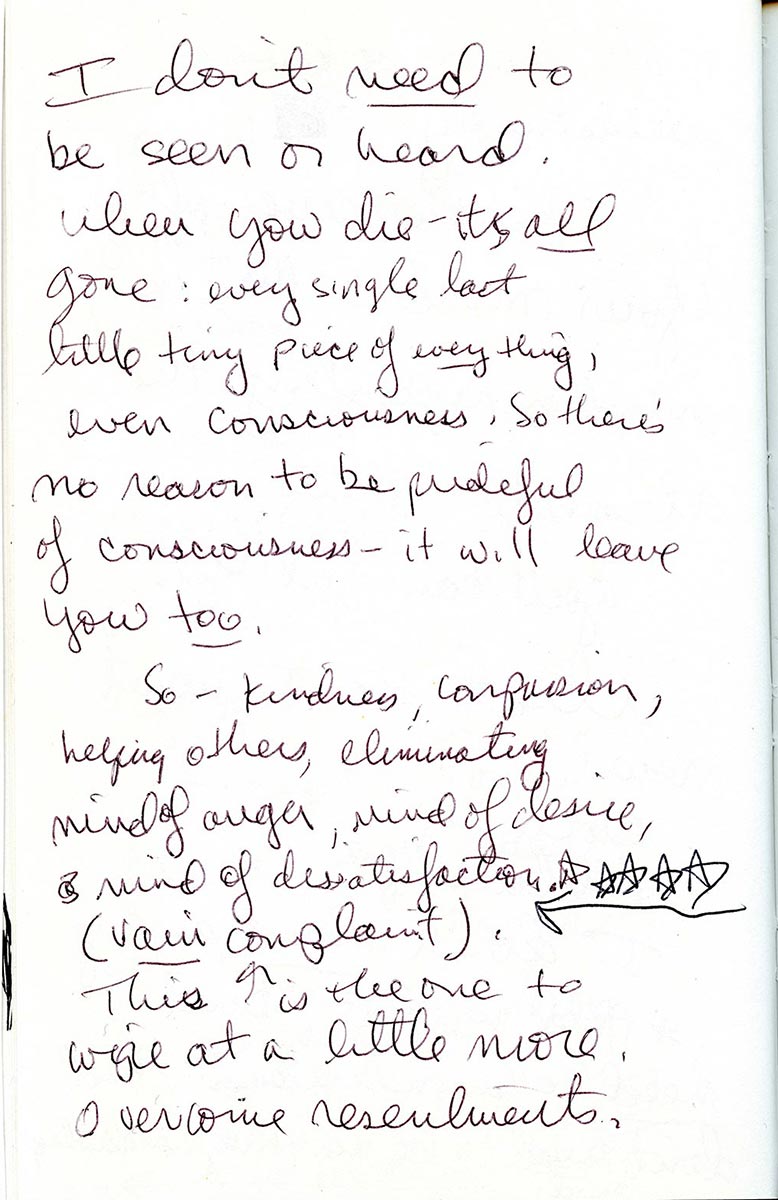 I don't need to
be seen or heard.
When you die - it's all
gone : every single last
little tiny piece of everything,
even consciousness. So there's
no reason to be prideful
of consciousness - it will leave
you too.
So - kindness, compassion,
helping others, eliminating
mind of anger, mind of desire,
& mind of dissatisfaction.
(vain complaint).
This is the one to
at a little more.
Overcome resentments.